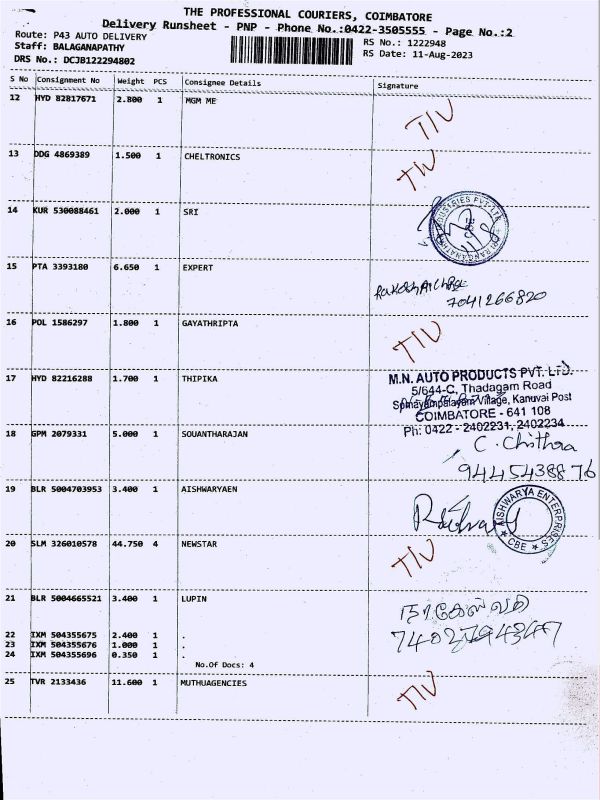 THE PROFESSIONAL COURIERS, COIMBATORE
Delivery Runsheet - PNP - Phone No.:0422-3505555 - Page No.:2
Route: P43 AUTO DELIVERY
RS No.: 1222948
Staff: BALAGANAPATHY
RS Date: 11-Aug-2023
DRS No.: DCJB122294802
S No Consignment No Weight PCS Consignee Details Signature
12 HYD 82817671 2.800 1 MGM ME
13 DDG 4869389 1.500 1 CHELTRONICS
14 KUR 530088461 2.000 1 SRI
15 PTA 3393180 6.650 1 EXPERT
7041266820
16 POL 1586297 1.800 1 GAYATHRIPTA
17 HYD 82216288 1.700 1 THIPIKA
M.N. AUTO PRODUCTS PVT. LTD.
5/644-C, Thadagam Road
Somayampalayam Village, Kanuvai Post
COIMBATORE - 641 108
Ph: 0422 - 2402231, 2402234
18 GPM 2079331 5.000 1 SOUANTHARAJAN
C. Chithra
9445438876
19 BLR 5004703953 3.400 1 AISHWARYAEN
AISHWARYA ENTERPRISES
★ CBE ★
20 SLM 326010578 44.750 4 NEWSTAR
21 BLR 5004665521 3.400 1 LUPIN
22 IXM 504355675 2.400 1 .
23 IXM 504355676 1.000 1 .
24 IXM 504355696 0.350 1 .
No.Of Docs: 4
25 TVR 2133436 11.600 1 MUTHUAGENCIES